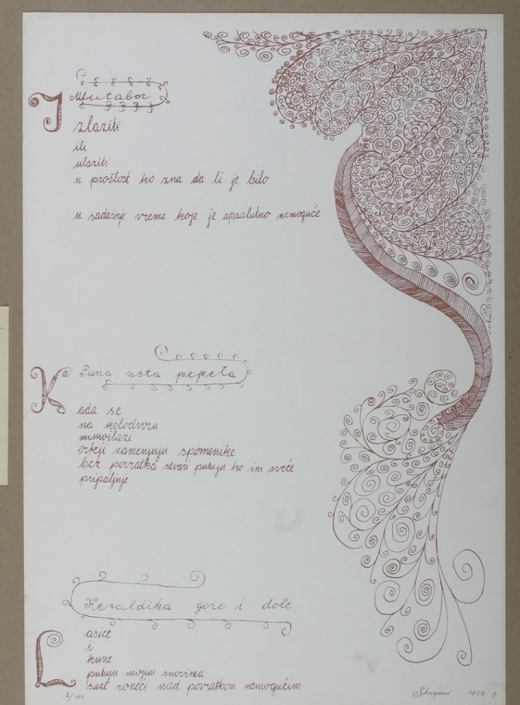 Mutabor
Izlaziti
ili
ulaziti
u prošlost ko zna da li je bilo
u sadašnje vreme koje je apsolutno nemoguće
Puna usta pepela
Kada se
na kolodvoru
mimoilaze
orkeji zamenjuju spomenike
bez povratka stvari putuju ko im sveće
pripaljuje
Heraldika gore i dole
Lasice
i
kune
putuju mojim snovima
suze roneći nad povratkom nemogućim